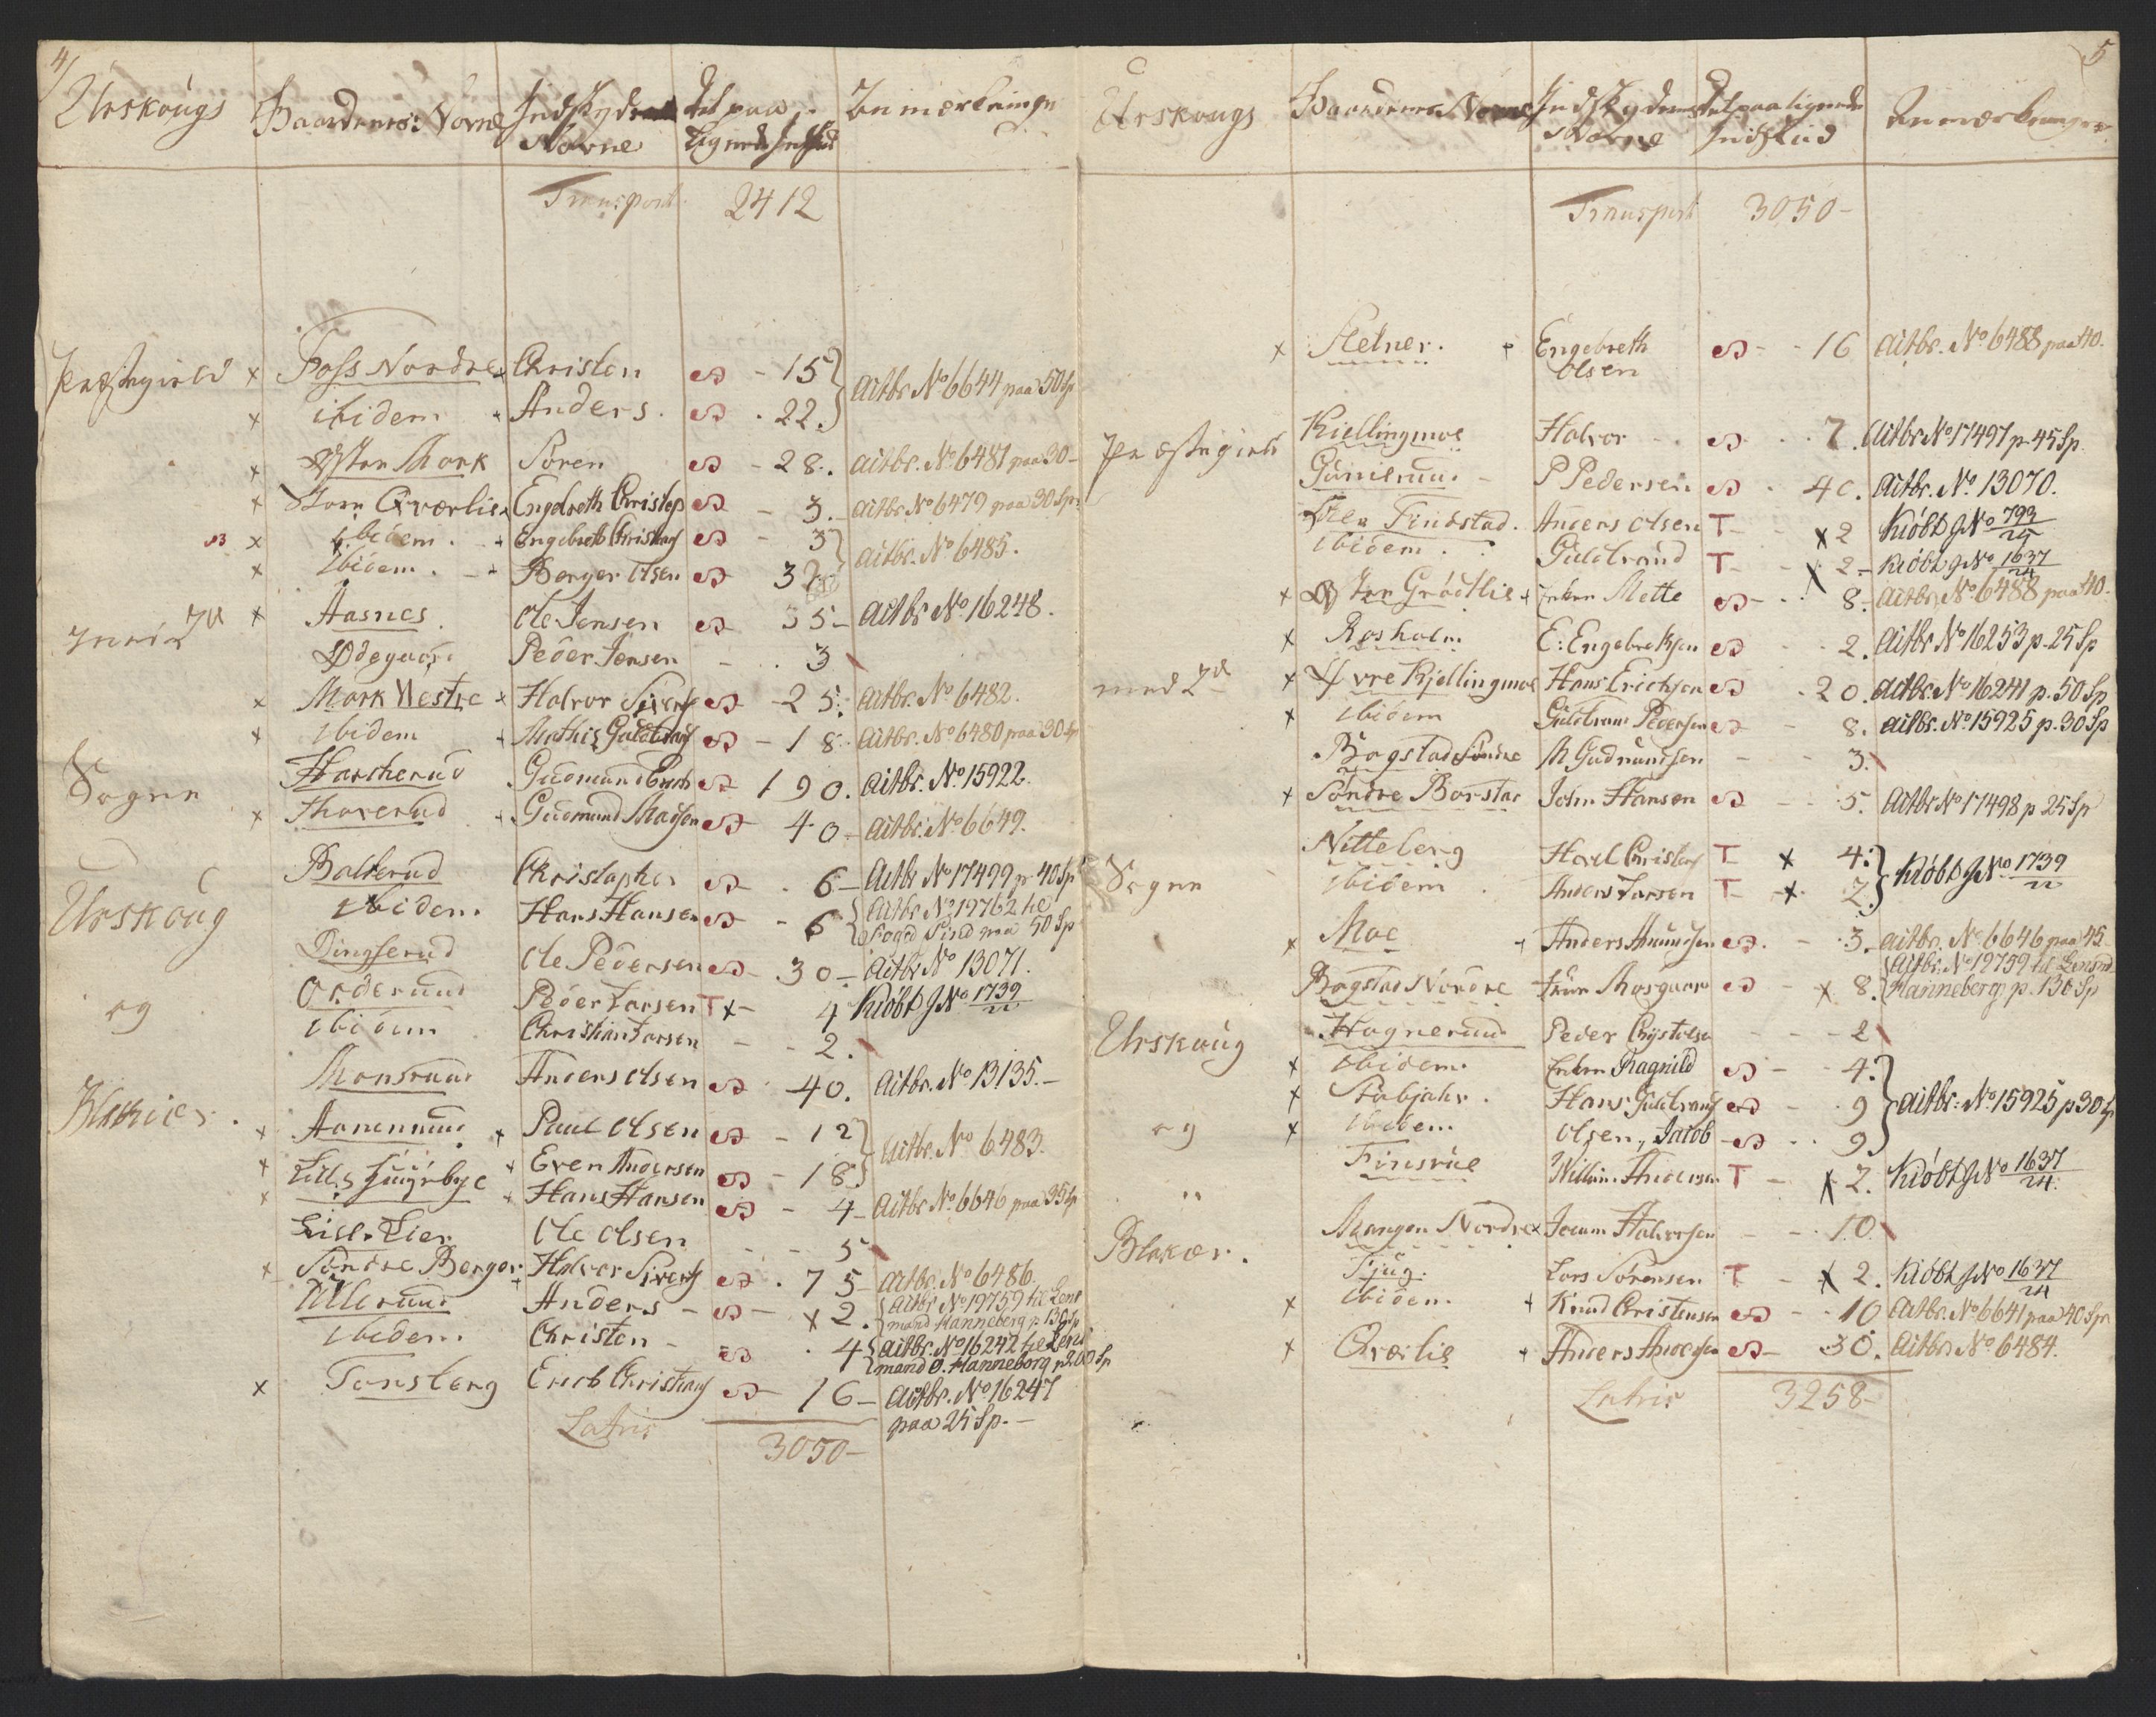 4/
Urskougs Gaardenes Navne Indskydernes Navne Det paaliggende Indskud Anmærkninger
Transport 2412
Præstegield x Foss Nordre Christen - 15 } Actbr. No 6644 paa 50 Sp
x ibidem Anders . 22. }
x Øster Mork Soren - 28. Actbr. No 6481 paa 30 -
x Store Qværlie Engebreth Christop - 3. - Actbr No 6479 paa 30 Sp.
x Ibidem Engebreth Christians - 3 } Actbr. No 6485.
x Ibidem Borger Olsen 37 }
med 2de x Aasnes Ole Jensen 35 - Actbr No 16248.
Ødegaard Peder Jensen - . 3
x Mark Westre x Halvor Sivers - 25. Actbr. No 6482.
x Ibidem Mathis Guldbrands - 18. Actbr. No 6480 paa 30 Sp
Sogne Harcherud Gudmund Erichs 190. Actbr. No 15922.
x Thorerud Gudmund Madsen 40 - Actbr. No 6649.
Balterud Christopher . 6 - Actbr No 17499 p. 40 Sp
Urskoug Ibidem Hans Hansen - 6 { Actbr No 19762 til Foged Sind paa 50 Sp
Dingserud Ole Pedersen 30 - Actbr No 13071.
og Orderuud Peder Larsen T x - 4 Kiöbt J No 1739/22
Ibidem Christian Larsen - - 2.
Monsruud Anders Olsen 40. Actbr. No 13135. -
Blakier. x Aanenruud x Paul Olsen - 12 } Actbr. No 6483.
x x Even Andersen - 18 }
x Hans Hansen - 4 - Actbr No 6646 paa 35 Sp
Lisl. Lier Ole Olsen - - 5
x Søndre Berger Halvor Sivers . 75 - Actbr. No 6486.
Ulleruud Anders - - x 2. { Actbr No 19759 til Lensmand Hanneberg p. 130 Sp
Ibidem Christen - . 4 { Actbr. No 16242 til Lensmand O. Hanneborg p 200 Sp
x Tonsberg Erich Christians - 16 - Actbr. No 16247
paa 25 Sp. -
Latus 3050 -
5
Urskougs Gaardenes Navne Indskydernes Navne Det paaliggende Indskud Anmærkninger
Transport 3050 -
x Sletner. Engebreth Olsen - - 16 Actbr. No 6488 paa 40.
Præstegield Kiellingmoe Halvor - . . . 7. Actbr No 17497 p. 45 Sp
Gunilruud - P Pedersen . 40. Actbr. No. 13070.
Finstad. Anders Olsen T - x 2 Kiöbt J No 793/25
Ibidem. Guldbrand T - x 2 - Kiöbt J No 1637/24
x Øster Grödtlie x Enken Mette - . 8 - Actbr. No 6488 paa 40 -
x Rosholm E: Engebretsen - . 2. Actbr No 16253 p. 25 Sp
med 2de x Øvre Kjellingmoe Hans Erichsen . 20. Actbr. No 16241 p. 50 Sp
x Ibidem Guldbrand Pedersen - 8. Actbr. No 15925 p. 30 Sp
Bogstad Søndre M Gudmundsen - - 3.
x Søndre Borstad John Hansen - - 5. Actbr No 17498 p 25 Sp
Sogne Nitteberg Havel Christens T x 4. } Kiöbt J No 1739/22
Ibidem Anders Larsen T - x. 2. }
x Moe x Anders Amundsen - . 3. - Actbr. No 6646 paa 45
Bogstad Nordre Mosgaar - x 8. { Actbr. No 19759 til Lensmd. Hanneberg. p. 130 Sp
Urskoug Hagneruud Peder - - - 2
x Ibidem. Enken Ragnild - - 4. } Actbr: No 15925 p 30 Sp
x Stubjahr. Hans Guldbrands - . 9 }
og x Ibidem. Olsen, Jacob - . . 9 }
Finsrue Andersen T - x 2. Kiöbt J No 1637/24.
Blakier. Mangen Nordre x Joeum Halvorsen - - . 10.
Tjug. Lars Sørensen T - x 2. Kiöbt J No 1637/24
x Ibidem. x Knud Christensen - . 10 Actbr. No 6641 paa 40 Sp.
x Qværlie x Anders Andersen - 30. Actbr. No 6484.
Latus 3258 -